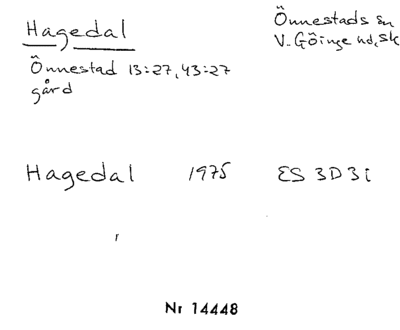 Hagedal
Önnestads sn
V. Göinge hd, Sk
Önnestad 13:27, 43:27
gård
Hagedal 1975 ES 3D3i
Nr 14448